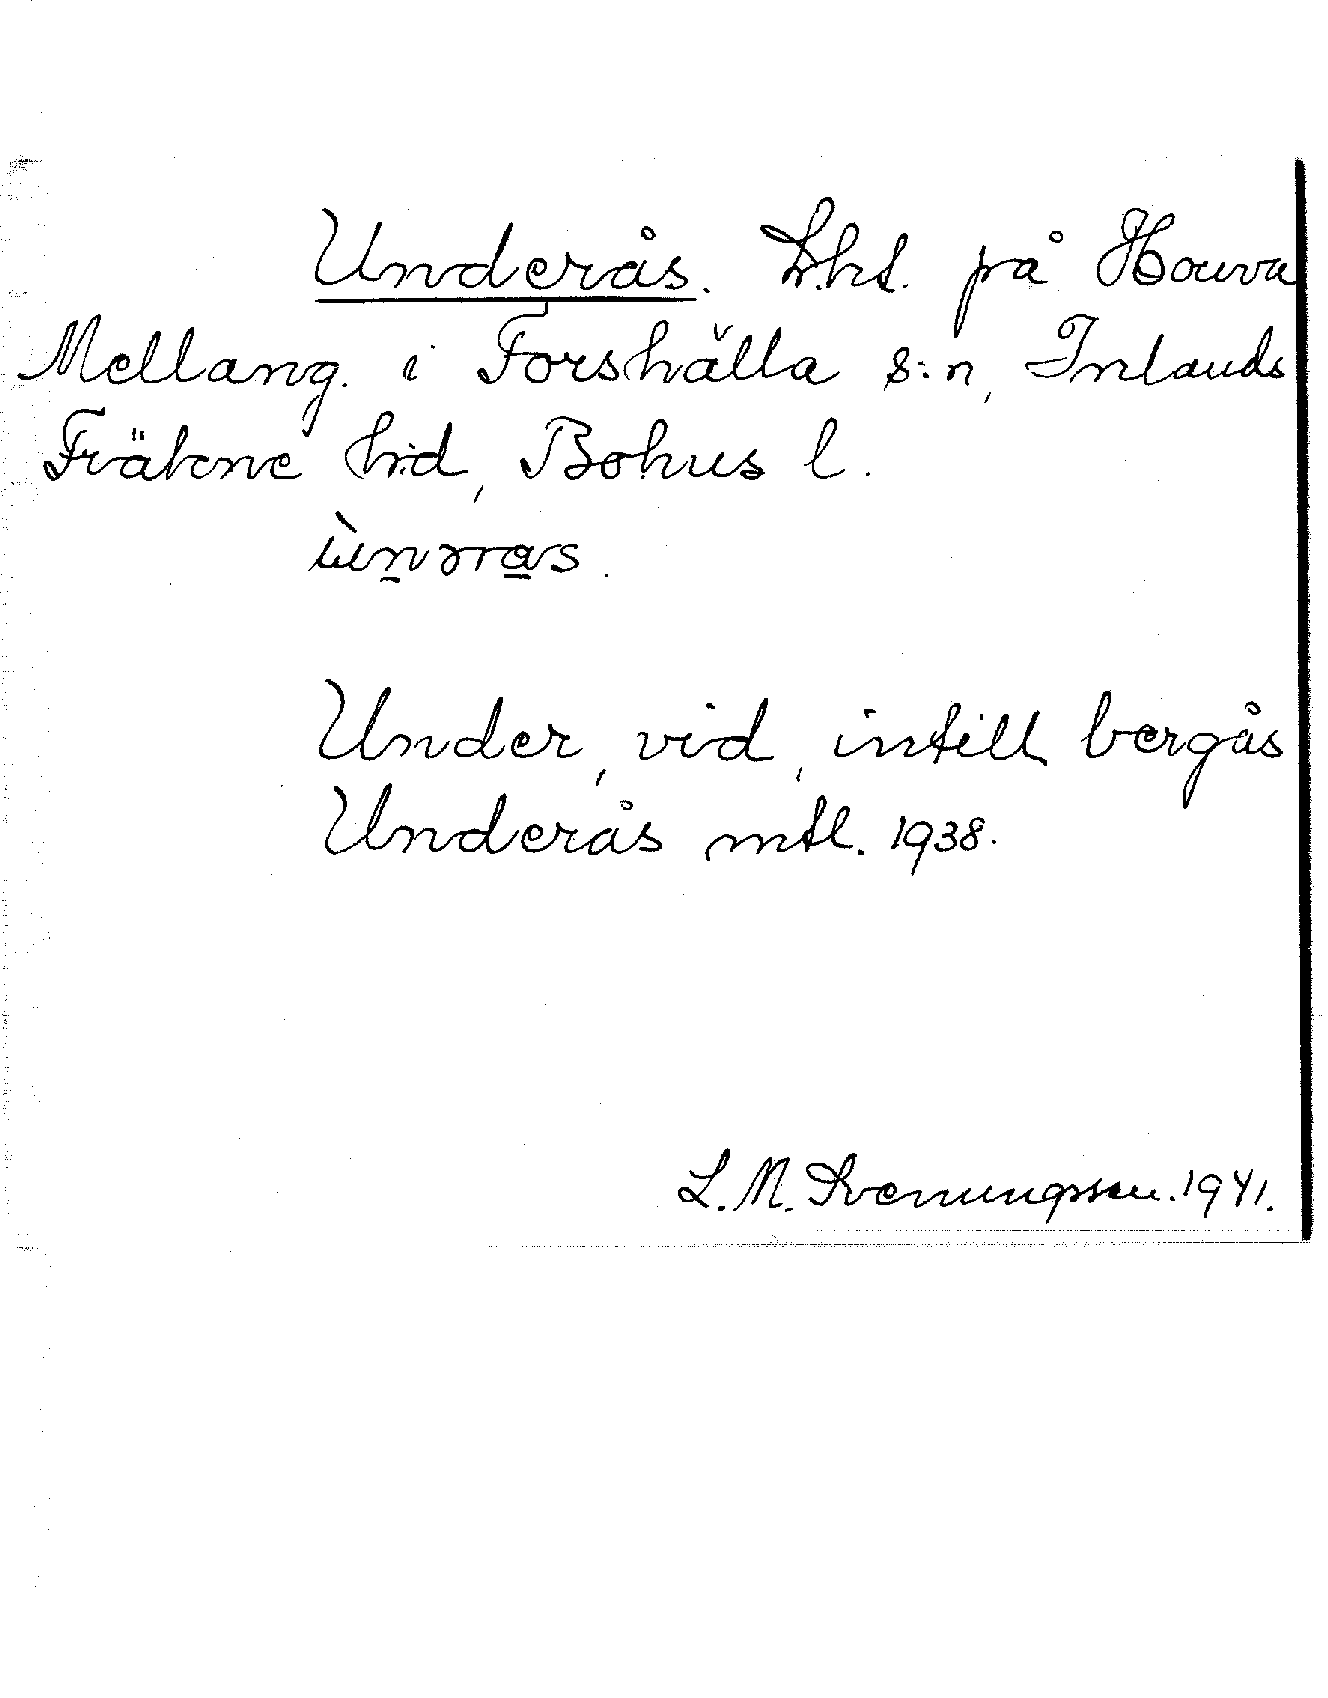 Underås. Lht. på Houva
Mellang. i Forshälla s:n, Inlands
Fräkne hrd, Bohus l.
Under, vid, intill bergås
Underås mtl. 1938.
L. M. Svenungsson. 1941.